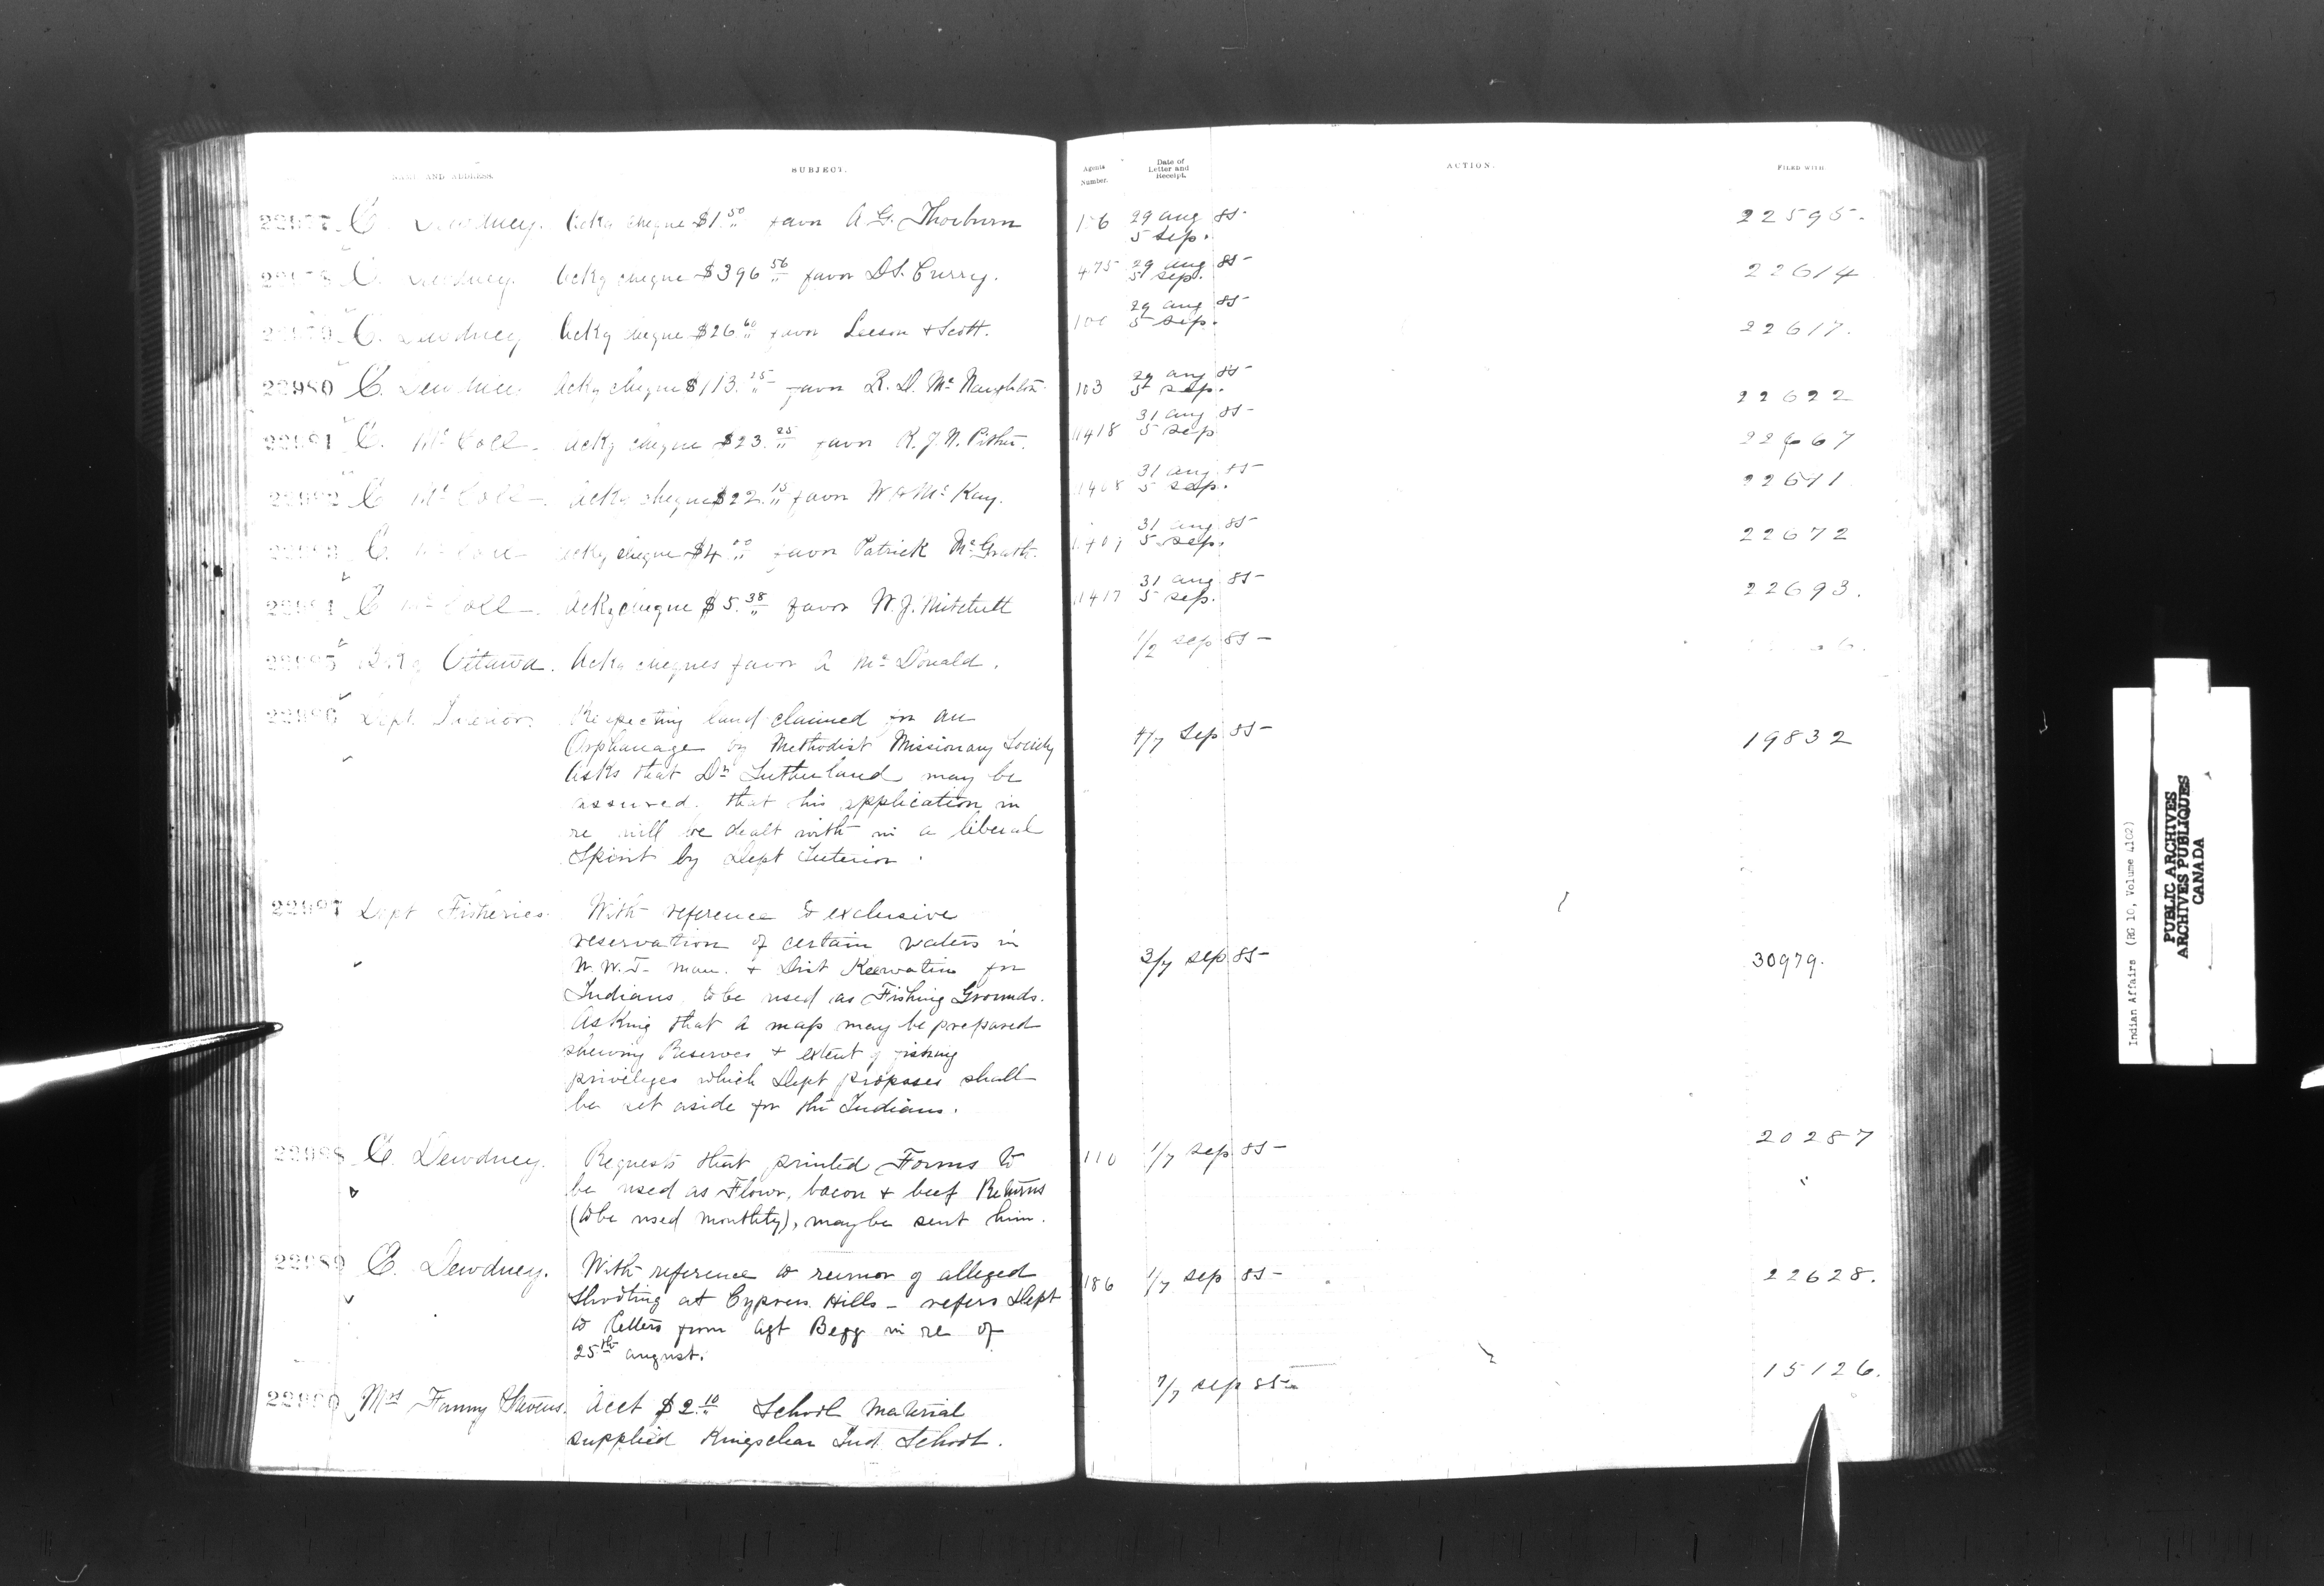 NAME AND ADDRESS.
SUBJECT.
Agents Number.
Date of Letter and Receipt.
ACTION.
FILED WITH
22977 E. Dewdney. Ackg cheque $1.50 favor A G. Thorburn 29 aug 85 22595.
5 sep.
22978 E. Dewdney. Ackg cheque $396 56 favor D.S. Curry. 475 29 aug 85 22614
5 sep.
22979 E. Dewdney Ackg cheque $26 60 favor Leeson & Scott. 29 aug 85 22617.
5 sep.
22980 E. Dewdney Ackg cheque $113. 15 favor R. D. McNaughton 103 29 aug 85 22622
5 sep.
22981 E. McColl. Ackg cheque $23. 25 favor K. J. N. Pither. 1418 31 aug 85 22667
5 sep
22982 E McColl Ackg cheque $22. 15 favor McKay. 1408 31 aug 85
5 sep.
22983 E. McColl Ackg cheque $4 favor Patrick McGrath. 31 aug 85 22672
5 sep.
22984 E McColl Ackg cheque $5. 38 favor W. J. Mitchell 1417 31 aug 85 22693.
5 sep.
22985 Ottawa. Ackg cheques favor A McDonald. 1/2 sep 85
22986 Dept. Interior. Respecting land claimed for an
Orphanage by Methodist Missionary Society 4/7 Sep 85 19832
Asks that Dr Sutherland may be
assured that his application in
re will be dealt with in a liberal
Spirit by Dept Interior.
22987 Dept Fisheries. With reference to exclusive
reservation of certain waters in
N.W.T. Man. & Dist Keewatin for 3/7 sep 85 30979.
Indians to be used as Fishing Grounds.
Asking that a map may be prepared
shewing Reserves & extent of fishing
privileges which Dept proposes shall
be set aside for the Indians.
22988 E. Dewdney. Requests that printed Forms to 110 1/7 sep 85 20287
be used as Flour, bacon & beef Returns "
(to be used monthly), may be sent him.
22989 E. Dewdney. With reference to rumor of alleged 186 1/7 sep 85 22628.
Shooting at Cypress Hills - refers Dept
to letters from Agt Begg in re of
25th august.
22990 Mrs Fanny Stevens. Acct $2.10 School material 7/7 sep 85 15126.
supplied Kingsclear Ind School.
Indian Affairs (RG 10, Volume 4102)
PUBLIC ARCHIVES
ARCHIVES PUBLIQUES
CANADA